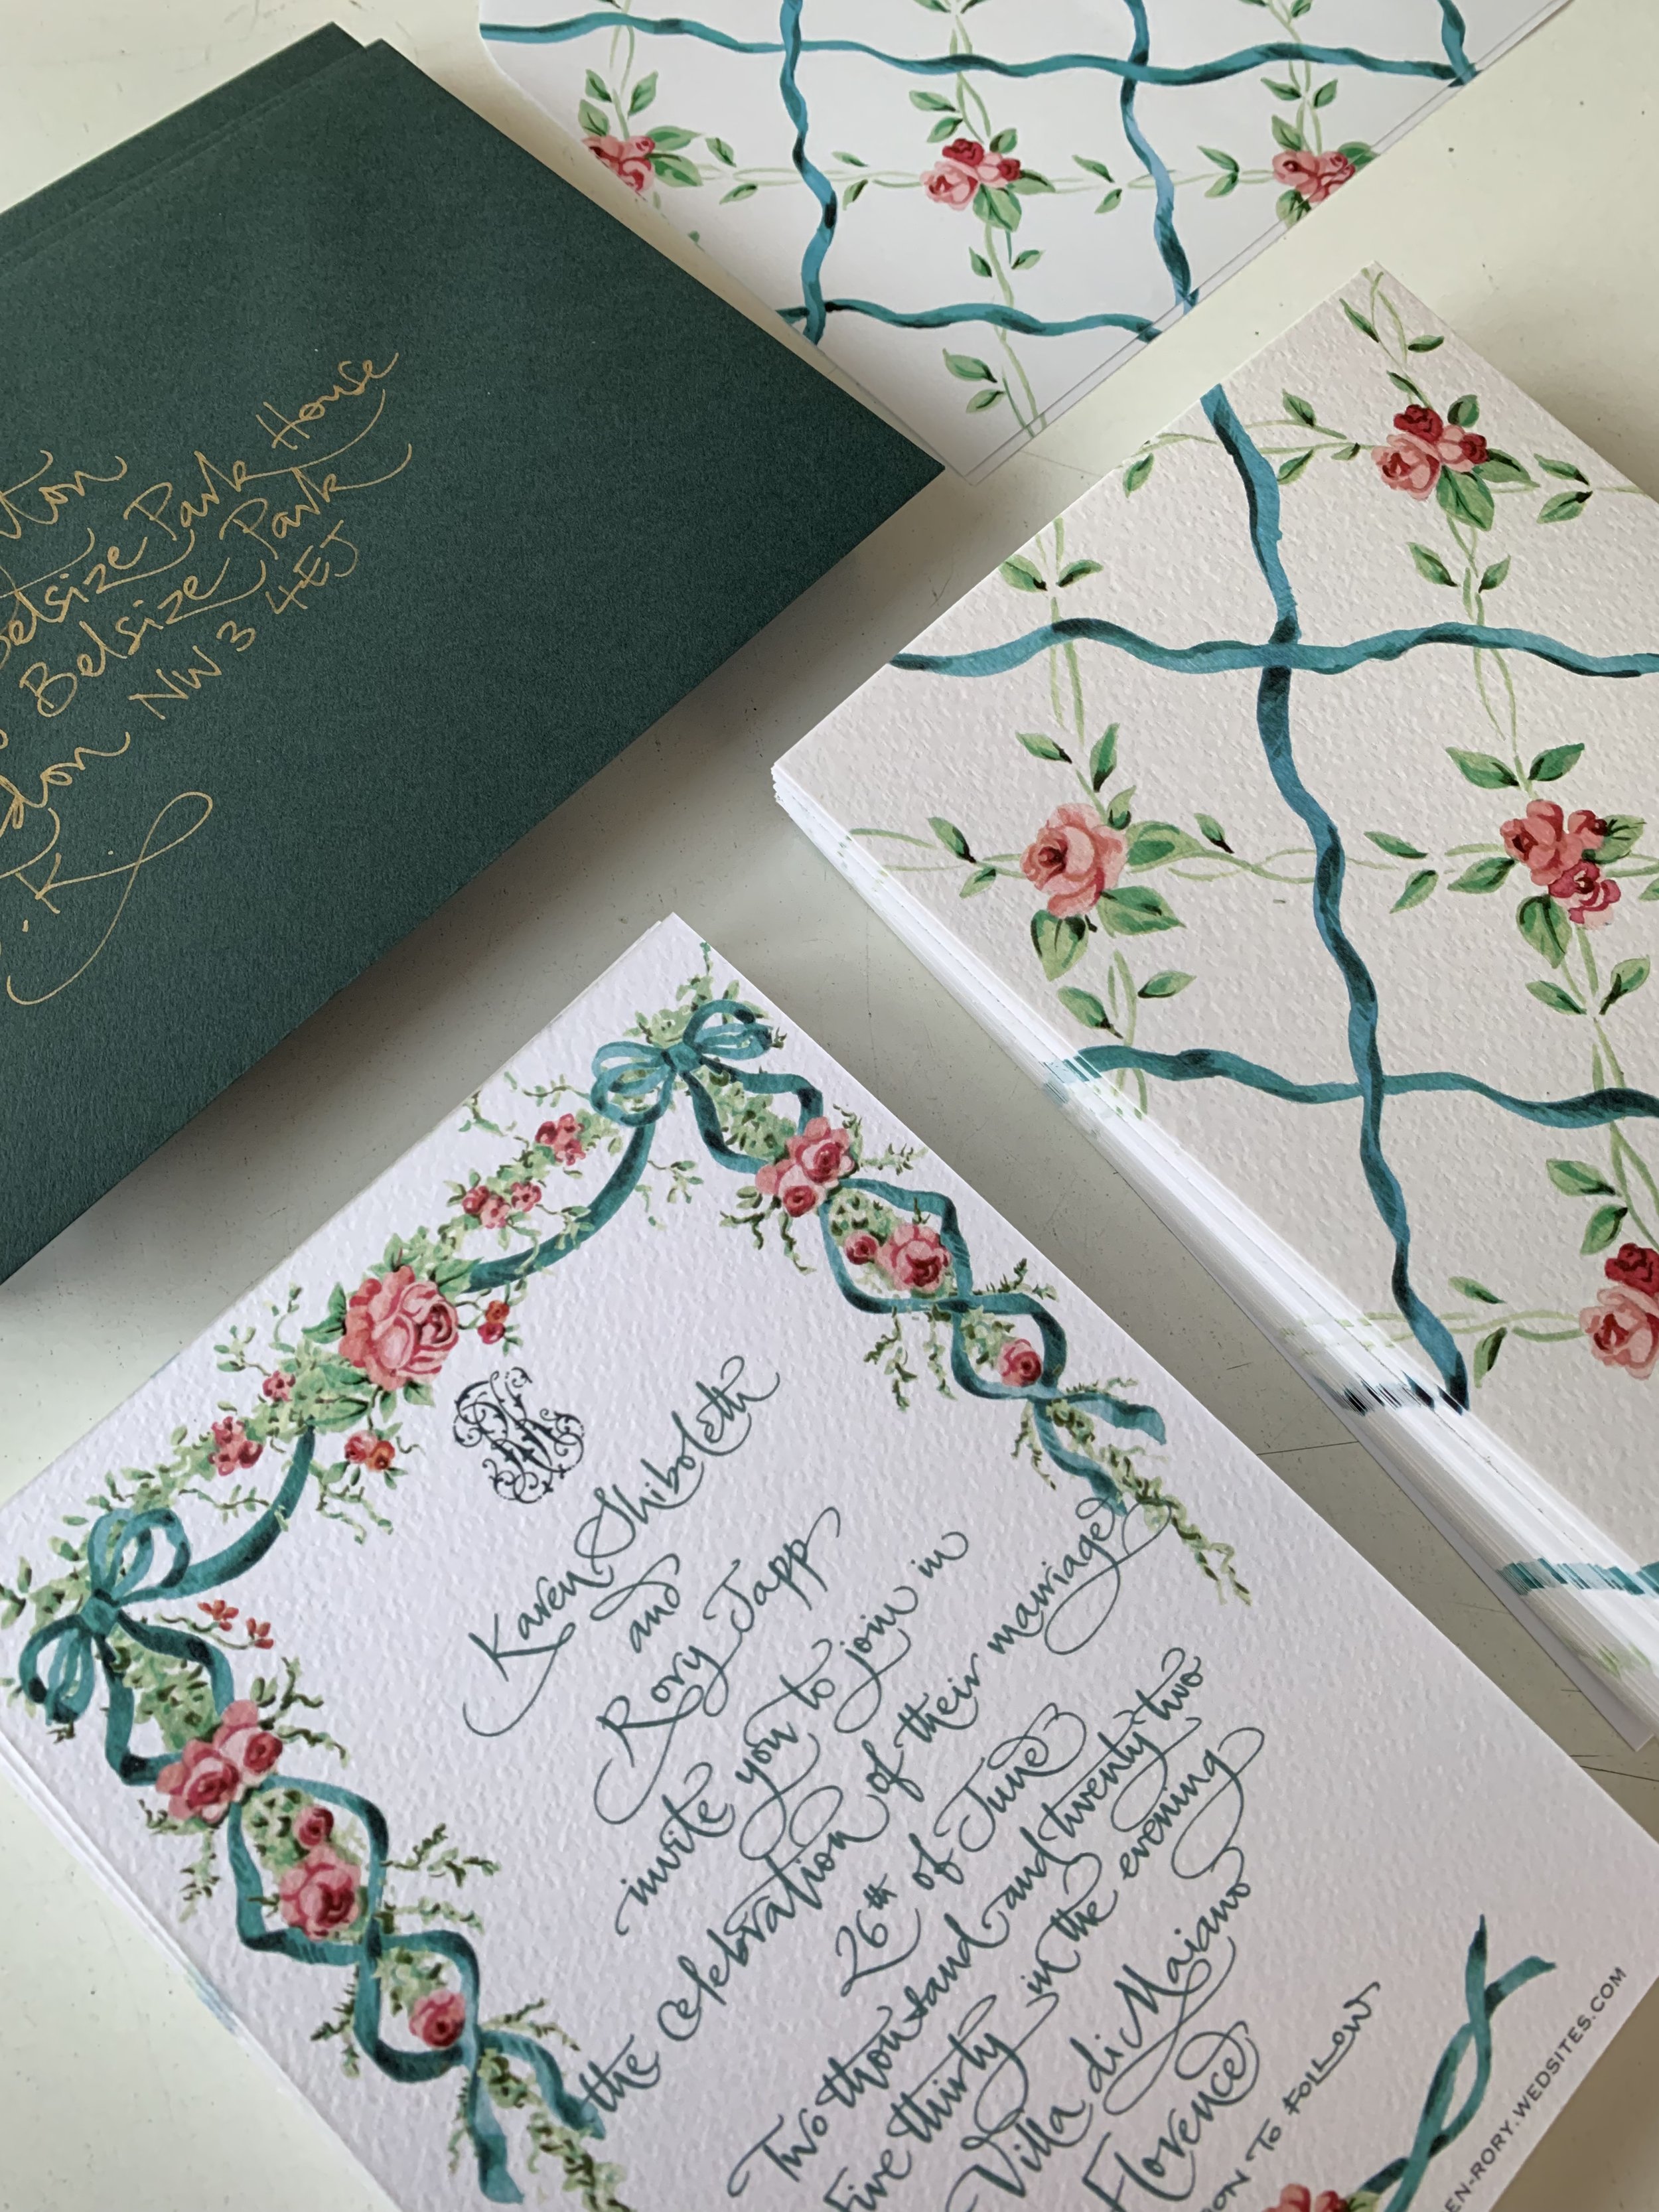 Belsize Park House
Belsize Park
NW3 4EJ
.K
Karen Shiboleth
and
Rory Tapp
invite you to join in
the celebration of their marriage
26th of June
Two thousand and twenty-two
Five thirty in the evening
Villa di Maiano
Florence
TO FOLLOW
EN-RORY.WEDSITES.COM